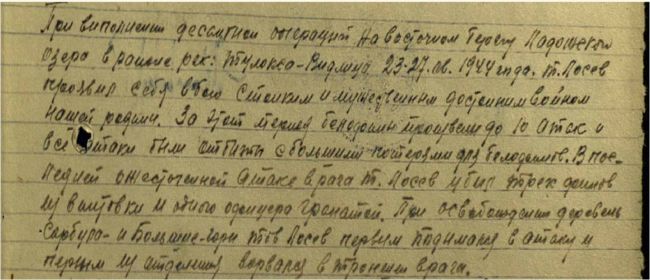 При выполнении десантной операций на восточном берегу Ладожского
озера в районе рек: Тулокса-Видлица 23-27.06.1944 года. т. Лосев
проявил себя в бою стойким и мужественным достойным войном
нашей родины. За этот период белофины произвели до 10 атак и
все атаки были отбиты с большими потерями для белофинов. В пос-
ледней ожесточенной атаке врага т. Лосев убил трех финнов
из винтовки и одного офицера гранатой. При освобождении деревень
Сарбура- и Большие-горы тов Лосев первым поднимался в атаку и
первым из отделения ворвался в траншеи врага.